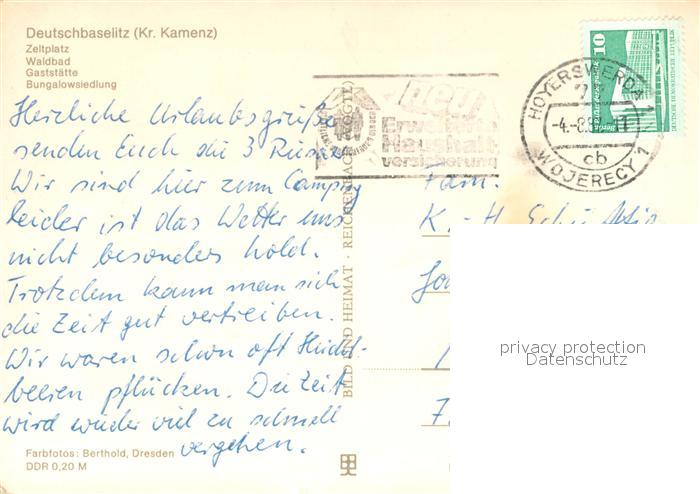 Deutschbaselitz (Kr. Kamenz)
Zeltplatz
Waldbad
Gaststätte
Bungalowsiedlung
Herzliche Urlaubsgrüße
senden Euch die 3
Wir sind hier zum Camping
leider ist das Wetter uns
nicht besonders hold.
Trotzdem kann man sich
die Zeit gut vertreiben.
Wir waren schon oft Heidel-
beeren pflücken. Die Zeit
wird wieder viel zu schnell
vergehen.
Farbfotos: Berthold, Dresden
DDR 0,20 M
BILD UND HEIMAT · REICHENBACH (VOGTL)
neu
Erweiterte
Haushalt-
versicherung
HOYERSWERDA 1
cb
WOJERECY 1
10
Fam.
K.-H.
privacy protection
Datenschutz